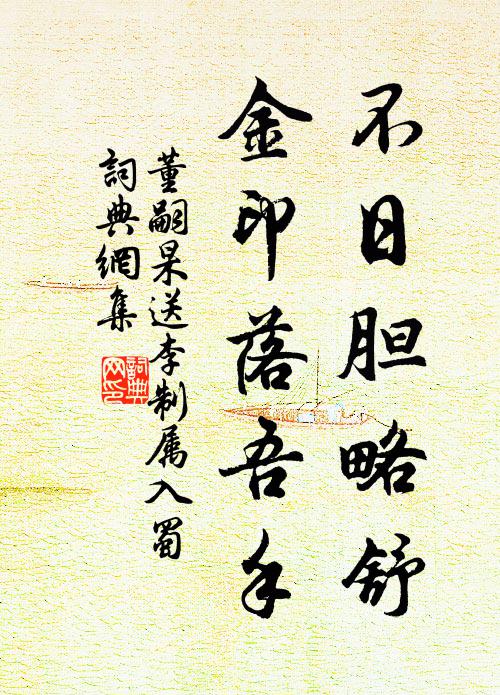 不日胆略舒
金印落吾手
董嗣杲送李制属入蜀
詞典網集
詞典网印